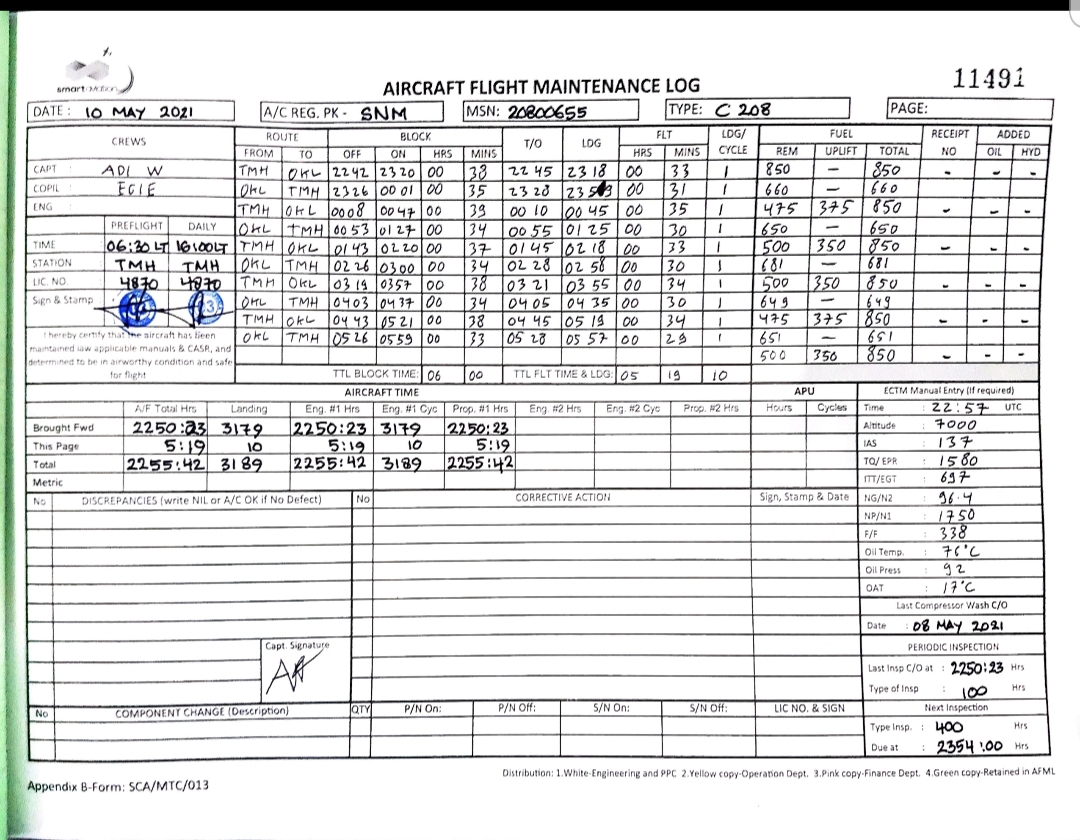 smart
AIRCRAFT FLIGHT MAINTENANCE LOG
11491
DATE : 10 MAY 2021 A/C REG. PK - SNM MSN: 20800655 TYPE: C 208 PAGE:
CREWS ROUTE BLOCK T/O LDG FLT LDG/ CYCLE FUEL RECEIPT NO ADDED
FROM TO OFF ON HRS MINS HRS MINS REM UPLIFT TOTAL OIL HYD
CAPT ADI W TMH OKL 2242 2320 00 38 2245 2318 00 33 1 850 - 850 - - -
COPIL EGIE OKL TMH 2326 0001 00 35 2328 00 31 1 660 - 660
ENG TMH OKL 0008 0047 00 39 0010 0045 00 35 1 475 375 850 - - -
PREFLIGHT DAILY OKL TMH 0053 0127 00 34 0055 0125 00 30 1 650 - 650
TIME 06:30 LT 16:00LT TMH OKL 0143 0220 00 37 0145 0218 00 33 1 500 350 850 - - -
STATION TMH TMH OKL TMH 0226 0300 00 34 0228 0258 00 30 1 681 - 681
LIC. NO. 4870 4870 TMH OKL 0319 0357 00 38 0321 0355 00 34 1 500 350 850 - - -
Sign & Stamp OKL TMH 0403 0437 00 34 0405 0435 00 30 1 649 - 649
TMH OKL 0443 0521 00 38 0445 0519 00 34 1 475 375 850 - - -
I hereby certify that the aircraft has been OKL TMH 0526 0559 00 33 0528 0557 00 29 1 651 - 651
maintained iaw applicable manuals & CASR, and 500 350 850 - - -
determined to be in airworthy condition and safe
for flight TTL BLOCK TIME: 06 00 TTL FLT TIME & LDG: 05 19 10
AIRCRAFT TIME APU ECTM Manual Entry (If required)
A/F Total Hrs Landing Eng. #1 Hrs Eng. #1 Cyc Prop. #1 Hrs Eng. #2 Hrs Eng. #2 Cyc Prop. #2 Hrs Hours Cycles Time : 22:57 UTC
Brought Fwd 2250:23 3179 2250:23 3179 2250:23 Altitude : 7000
This Page 5:19 10 5:19 10 5:19 IAS : 137
Total 2255:42 3189 2255:42 3189 2255:42 TQ/ EPR : 1580
Metric ITT/EGT : 697
No DISCREPANCIES (write NIL or A/C OK if No Defect) No CORRECTIVE ACTION Sign, Stamp & Date NG/N2 : 96.4
NP/N1 : 1750
F/F : 338
Oil Temp. : 76°C
Oil Press : 92
OAT : 17°C
Last Compressor Wash C/O
Date : 08 MAY 2021
Capt. Signature PERIODIC INSPECTION
Last Insp C/O at : 2250:23 Hrs
Type of Insp : 100 Hrs
No COMPONENT CHANGE (Description) QTY P/N On: P/N Off: S/N On: S/N Off: LIC NO. & SIGN Next Inspection
Type Insp. : 400 Hrs
Due at : 2354:00 Hrs
Distribution: 1.White-Engineering and PPC 2.Yellow copy-Operation Dept. 3.Pink copy-Finance Dept. 4.Green copy-Retained in AFML
Appendix B-Form: SCA/MTC/013